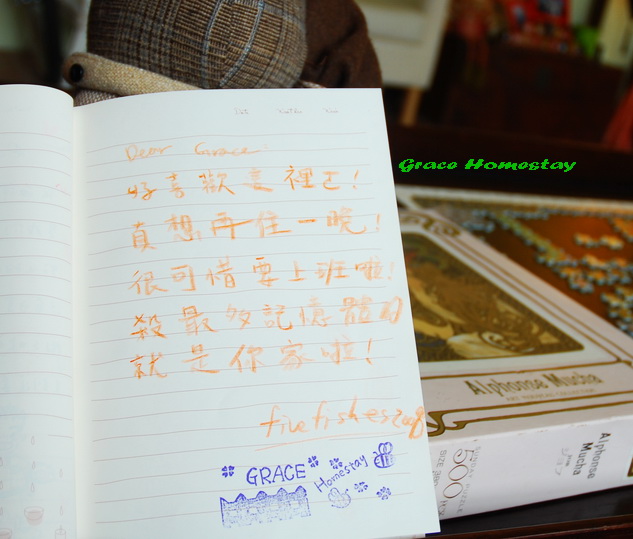 Dear Grace:
好喜歡這裡ㄛ!
真想再住一晚!
很可惜要上班啦!
殺最多記憶體的
就是你家啦!
fivefishes2008
GRACE
Homestay
Grace Homestay
Alphonse Mucha
500
SIZE
Alphonse
Mucha